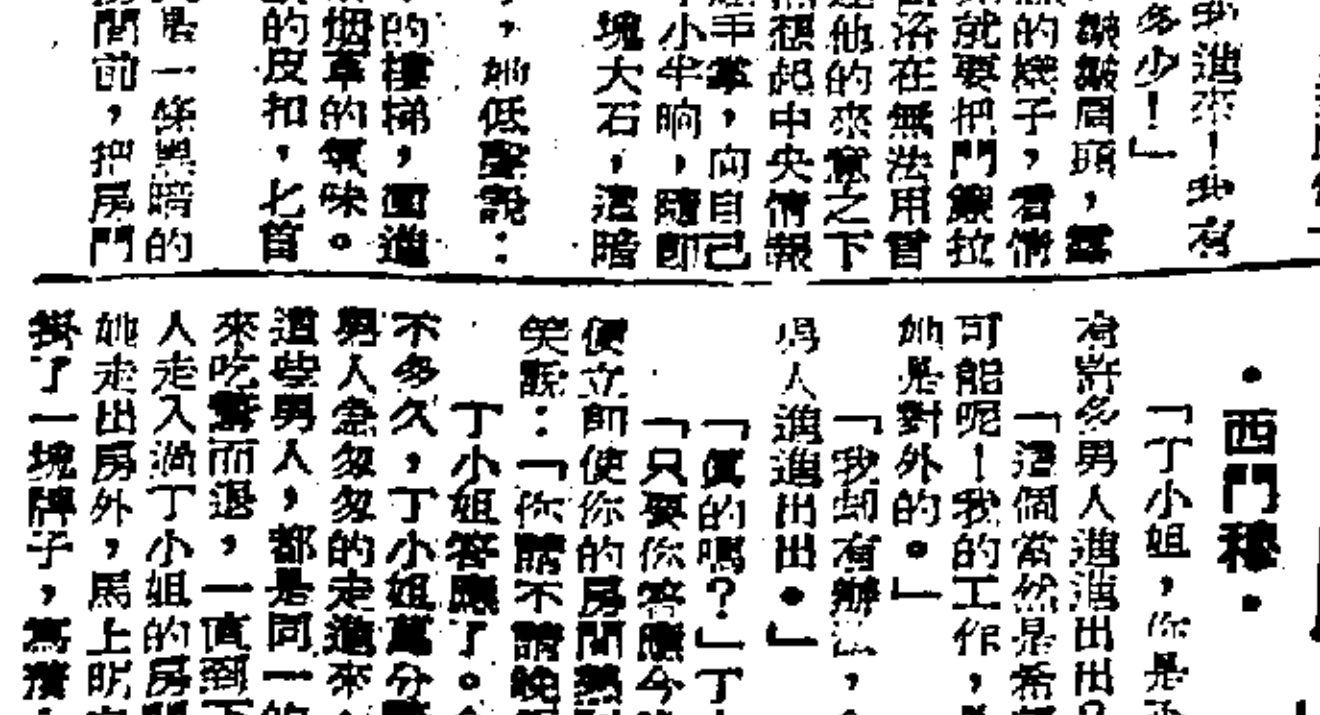 我進來！我有
多少！」
皺皺眉頭，露
的幾子，看情
就要把門鍊拉
落在無法用冒
他的來意之下
想起中央情報
手掌，向自己
小半晌，隨即
塊大石，這暗
，她低聲說：
的樓梯，面進
烟草的氣味。
的皮扣，七首
是一條黑暗的
間前，把房門
·西門穆·
「丁小姐，你是
有許多男人進進出出
「這個當然是希
可能呢！我的工作，
她是對外的。」
「我却有辦法，
男人進進出出。」
「真的嗎？」丁
「只要你答應今
便立即使你的房間
笑說：「你請不請晚
丁小姐答應了。
不多久，丁小姐萬分
男人急匆匆的走進來
這些男人，都是同一的
來吃驚而退，一直到下
人走入過丁小姐的房間
她走出房外，馬上
掛了一塊牌子，寫着